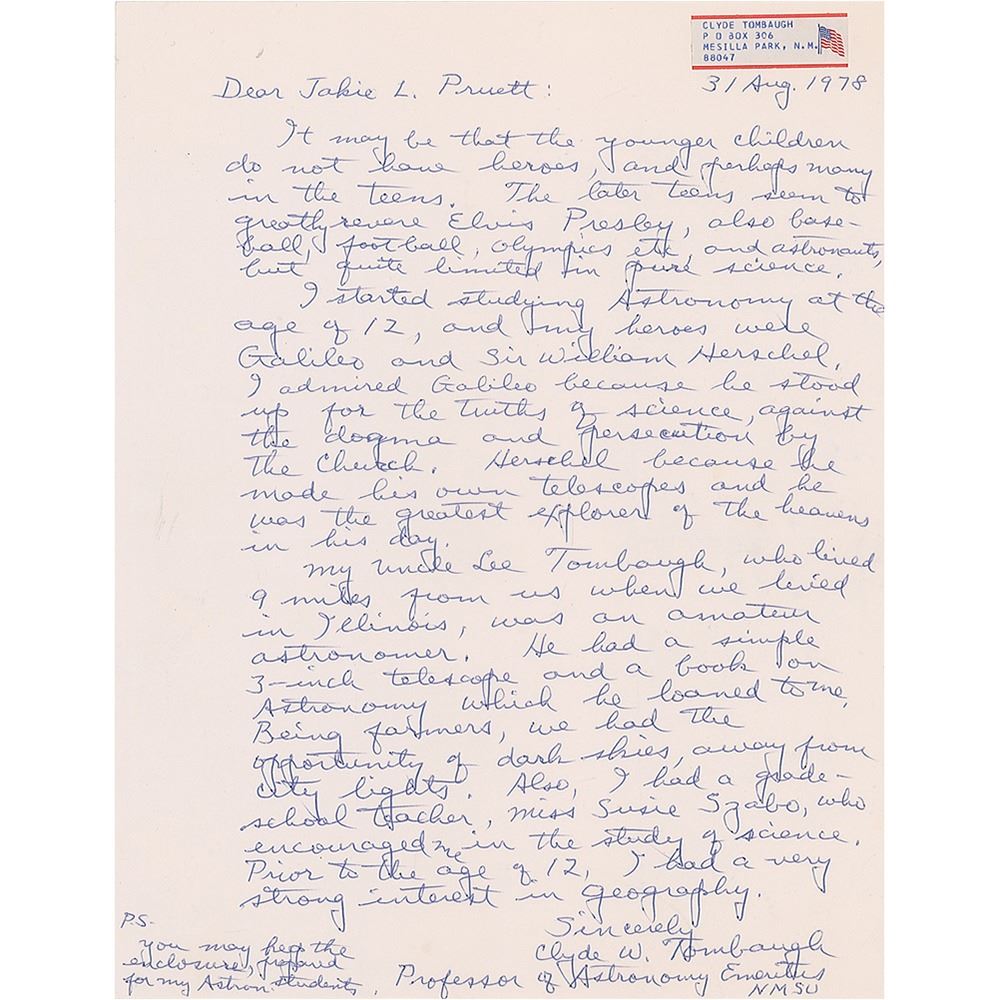 CLYDE TOMBAUGH
P O BOX 306
MESILLA PARK, N.M.
88047
31 Aug. 1978
Dear Jakie L. Pruett:
It may be that the younger children
do not have heroes, and perhaps many
in the teens. The later teens seem to
greatly revere Elvis Presley, also base-
ball, football, olympics etc, and astronauts,
but quite limited in pure science.
I started studying Astronomy at the
age of 12, and my heroes were
Galileo and Sir William Herschel.
I admired Galileo because he stood
up for the truths of science, against
the dogma and persecution by
the Church. Herschel because he
made his own telescopes and he
was the greatest explorer of the heavens
in his day.
My uncle Lee Tombaugh, who lived
9 miles from us when we lived
in Illinois, was an amateur
astronomer. He had a simple
3-inch telescope and a book on
Astronomy which he loaned to me.
Being farmers, we had the
opportunity of dark skies, away from
city lights. Also, I had a grade-
school teacher, Miss Susie Szabo, who
encouraged me in the study of science.
Prior to the age of 12, I had a very
strong interest in geography.
Sincerely
Clyde W. Tombaugh
Professor of Astronomy Emeritus
NMSU
P.S.
You may keep the
enclosure, prepared
for my Astron. students.